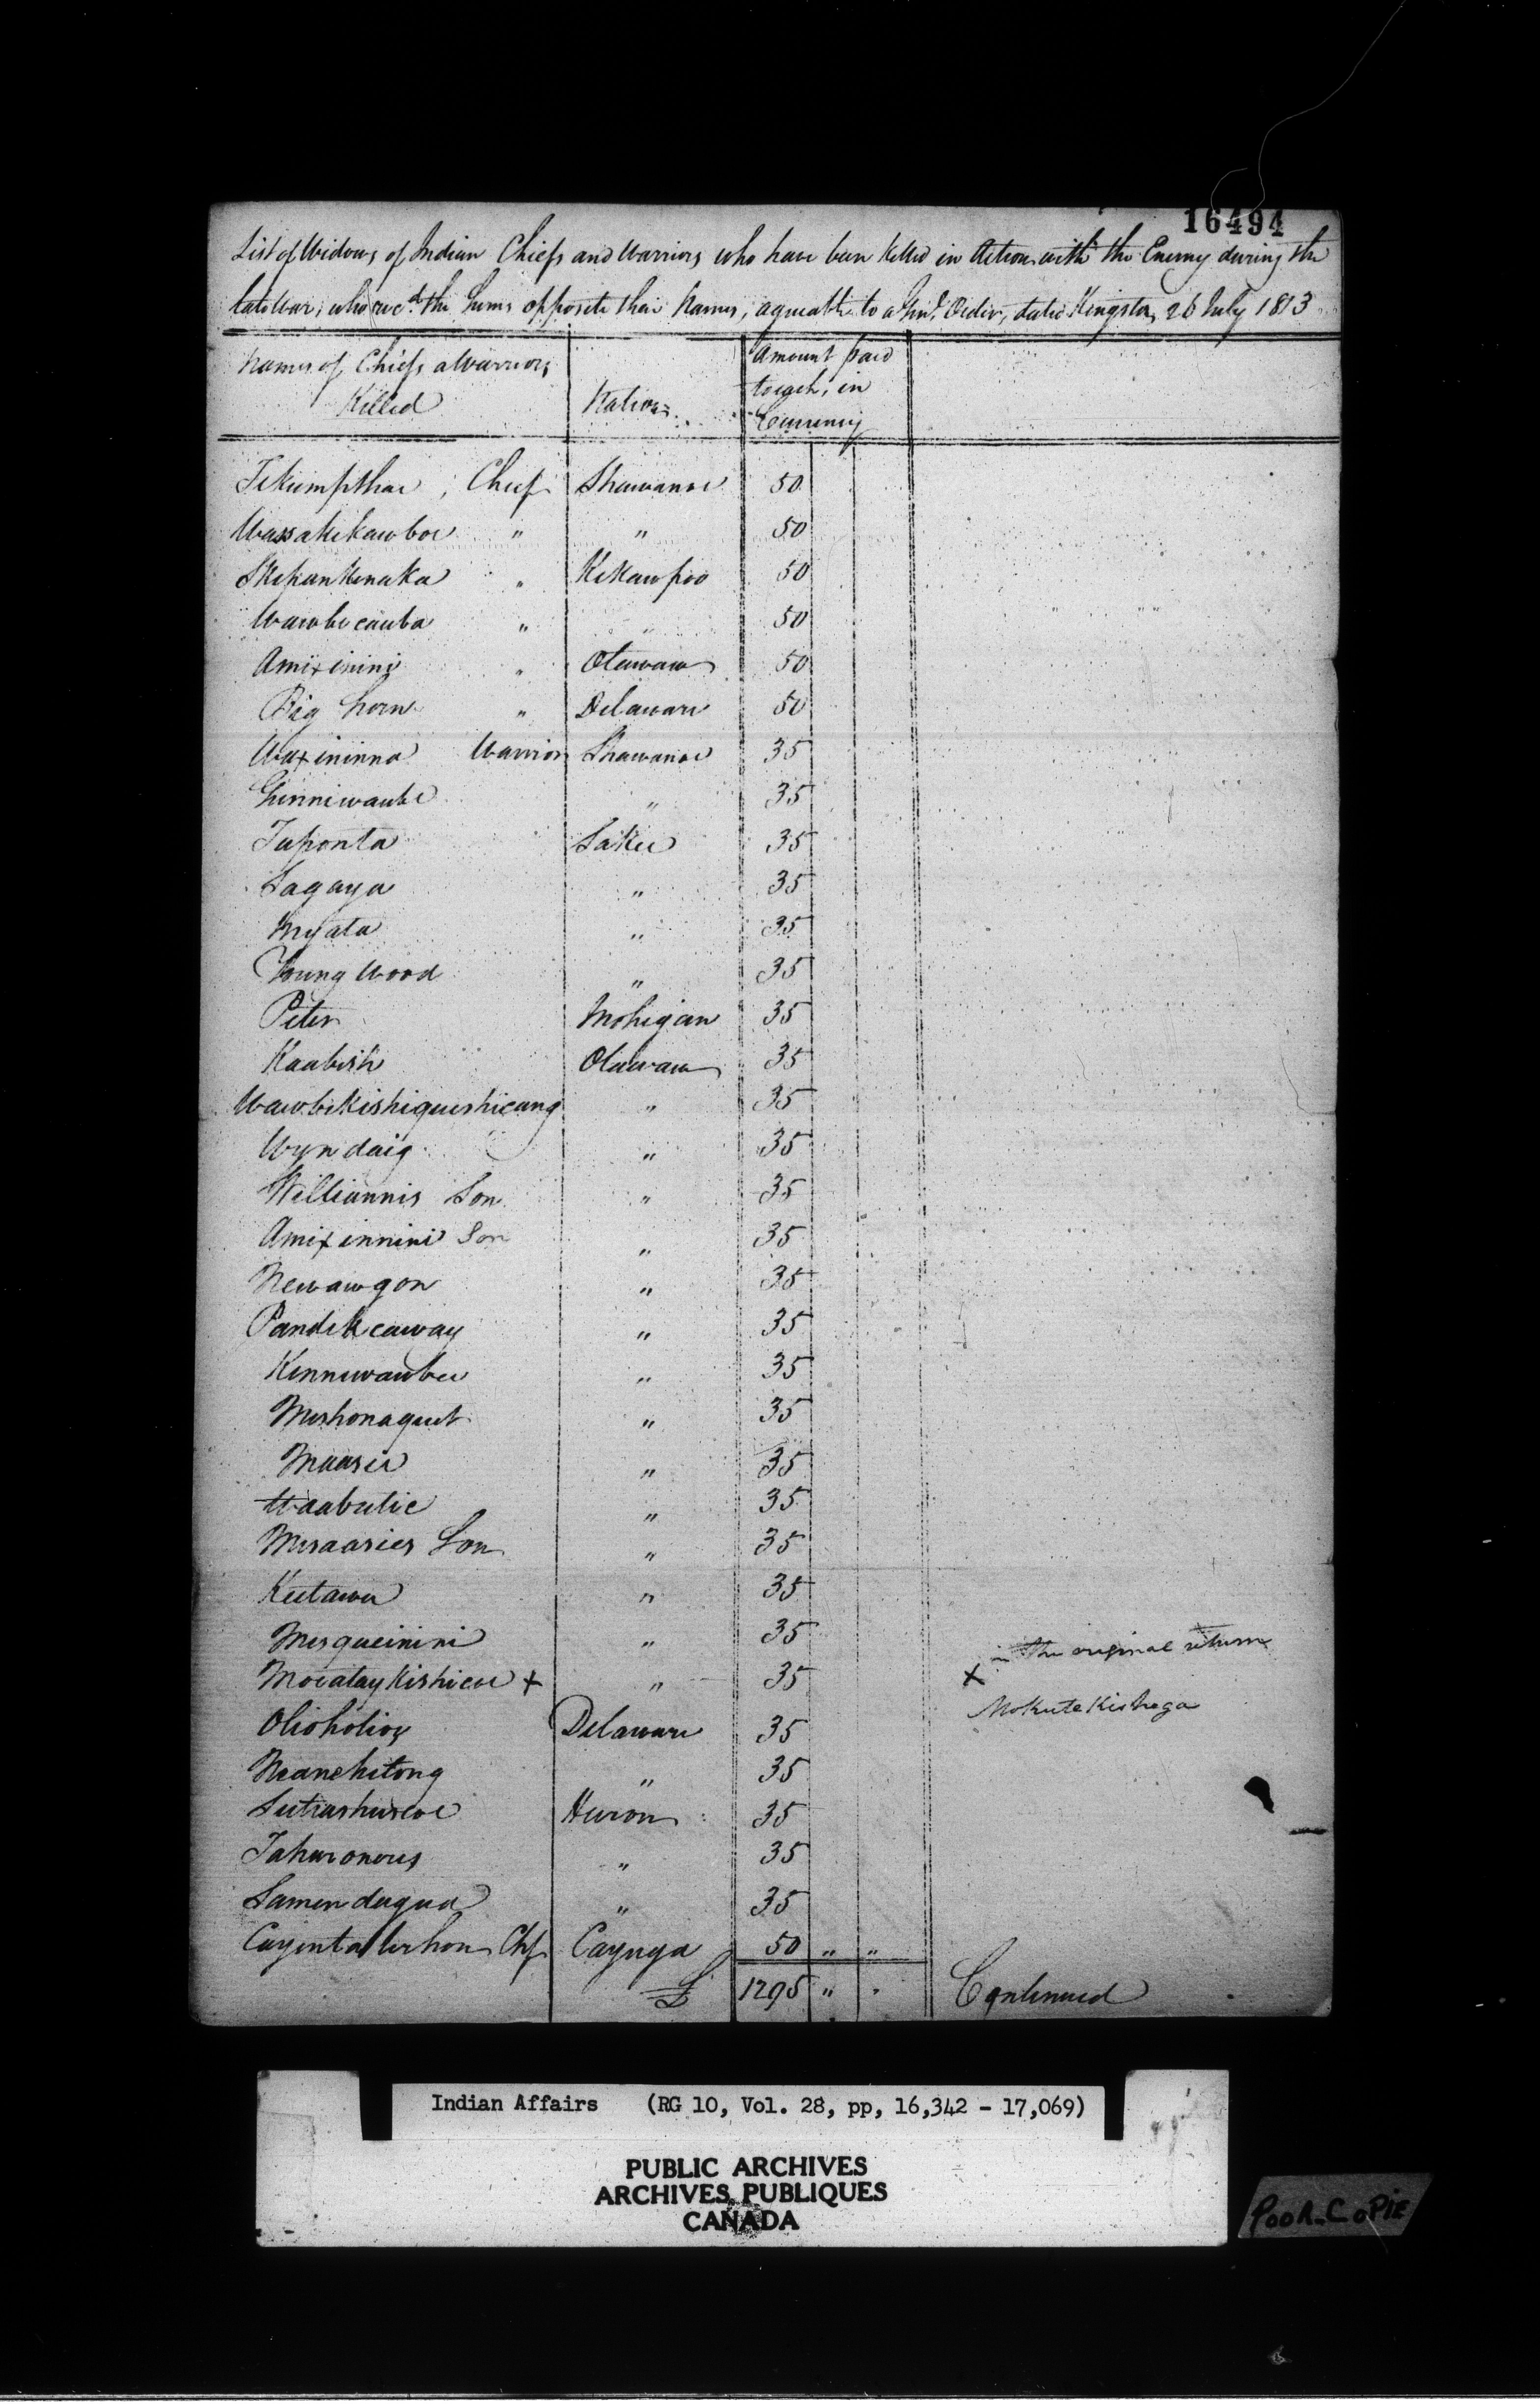 16494
List of Widows of Indian Chiefs and Warriors who have been killed in Action with the Enemy during the
late War, who recd. the Sums opposite their Names, agreeable to a Genl. Order, dated Kingston, 26 July 1813
Names of Chiefs & Warriors Killed Nation Amount paid to each, in Currency
Tekumpthae, Chief Shawanoe 50
Wassakekawboe " " 50
Skipankenaka " Kekawpoo 50
Wawbecauba " " 50
Amixinini " Otawaw 50
Big horn " Delaware 50
Waxininna Warrior Shawanoe 35
Ginniwaube " 35
Taponta Sakee 35
Sagaya " 35
Myata " 35
Young Wood " 35
Peter Mohigan 35
Kaabish Otawaw 35
Wawbekishigueshicang " 35
Wyndaig " 35
Williannis Son " 35
Amixinnini Son " 35
Newawgon " 35
Pandikeaway " 35
Kinnewawbee " 35
Meshonaquet " 35
Maasie " 35
Waabutie " 35
Mesaasies Son " 35
Keetawee " 35
Mesqueinini " 35
Mocataykishicoe x " 35
x in the original return
Mokutekishega
Olioholioy Delaware 35
Neanchitong " 35
Sutrashuscoe Huron 35
Tahuronores " 35
Samendaqua " 35
Cayentatirhon Chf Cayuga 50 " "
£ 1295 " "
Continued
Indian Affairs (RG 10, Vol. 28, pp, 16,342 - 17,069)
PUBLIC ARCHIVES
ARCHIVES PUBLIQUES
CANADA
POOR-COPIE